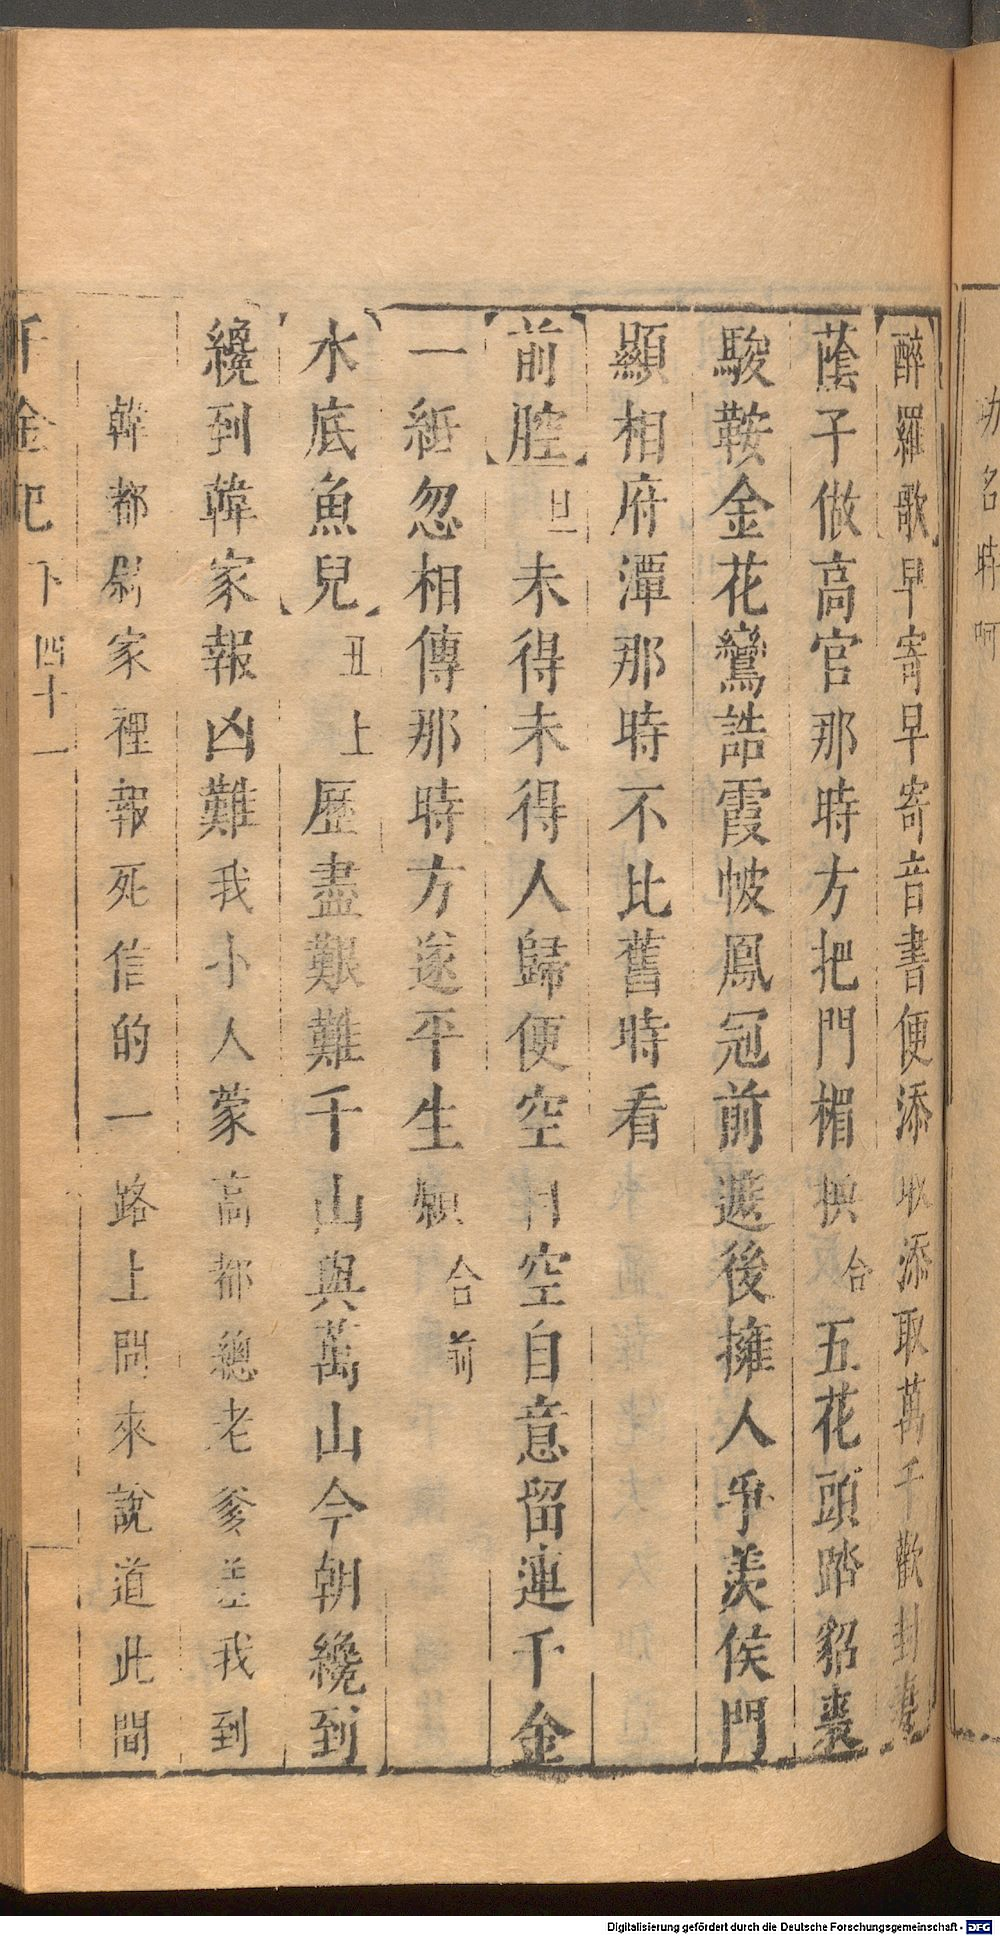 功名時呵
醉羅歌早寄早寄音書便添取添取萬千歡封妻
蔭子做高官那時方把門楣換合五花頭踏貂裘
駿鞍金花鸞誥霞帔鳳冠前遮後擁人爭羨侯門
顯相府潭那時不比舊時看
前腔旦未得未得人歸便空自空自意留連千金
一紙忽相傳那時方遂平生願合前
水底魚兒丑上歷盡艱難千山與萬山今朝纔到
纔到韓家報凶難我小人蒙高都總老爹差我到
韓都尉家裡報死信的一路上問來說道此間
千金記下四十一
Digitalisierung gefördert durch die Deutsche Forschungsgemeinschaft - DFG